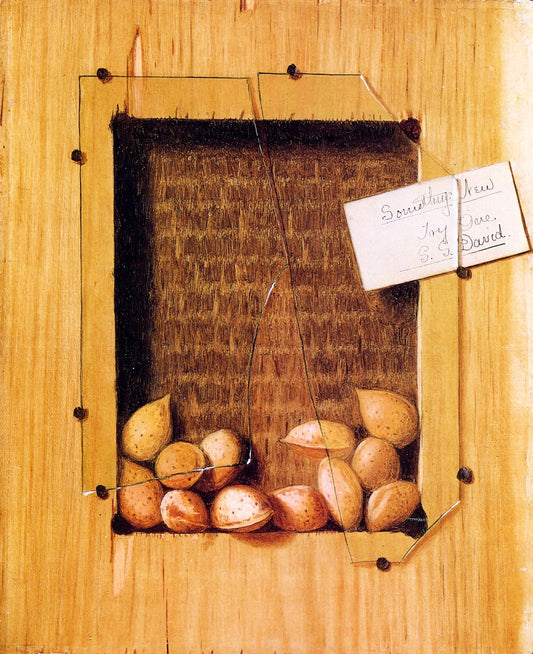 Something New
Try One.
S. S. David.